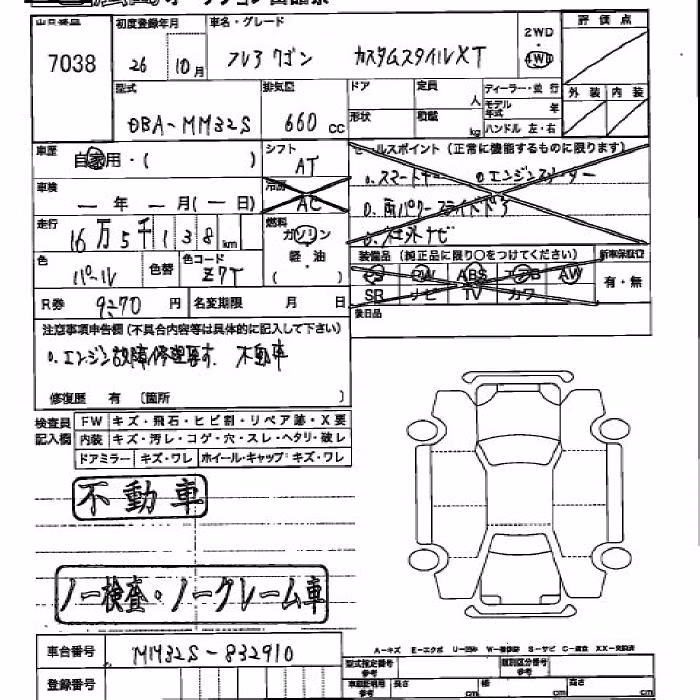 オークション出品票
出品番号 初度登録年月 車名・グレード 2WD ・ 4WD 評価点
7038 26 10月 フレアワゴン カスタムスタイルXT
型式 排気量 ドア 定員 人 ディーラー・並行 外装 内装
DBA-MM32S 660cc 形状 積載 kg モデル年式 年 ハンドル 左・右
車歴 自家用・( ) シフト AT セールスポイント (正常に機能するものに限ります)
車検 ー年 ー月(ー日) 冷房 AC
走行 16万5千138km 燃料 ガソリン・軽油 ( )
色 パール 色替 色コード Z7T
装備品 (純正品に限り○をつけてください) 新車保証書
PS PW ABS エアB AW 有・無
SR ナビ TV カワ
R券 9270円 名変期限 月 日 後日品
注意事項申告欄(不具合内容等は具体的に記入して下さい)
o.エンジン故障修理要す. 不動車
修復歴 有 〔箇所 〕
検査員記入欄 FW キズ・飛石・ヒビ割・リペア跡・X要
内装 キズ・汚レ・コゲ・穴・スレ・ヘタリ・破レ
ドアミラー キズ・ワレ ホイール・キャップ キズ・ワレ
不動車
ノー検査・ノークレーム車
車台番号 MM32S-832910
A-キズ E-エクボ U-凹み W-補修跡 S-サビ C-腐食 XX-交換済
型式指定番号 参考 類別区分番号 参考
登録番号 車庫証明用 参考 長さ cm 幅 cm 高さ cm